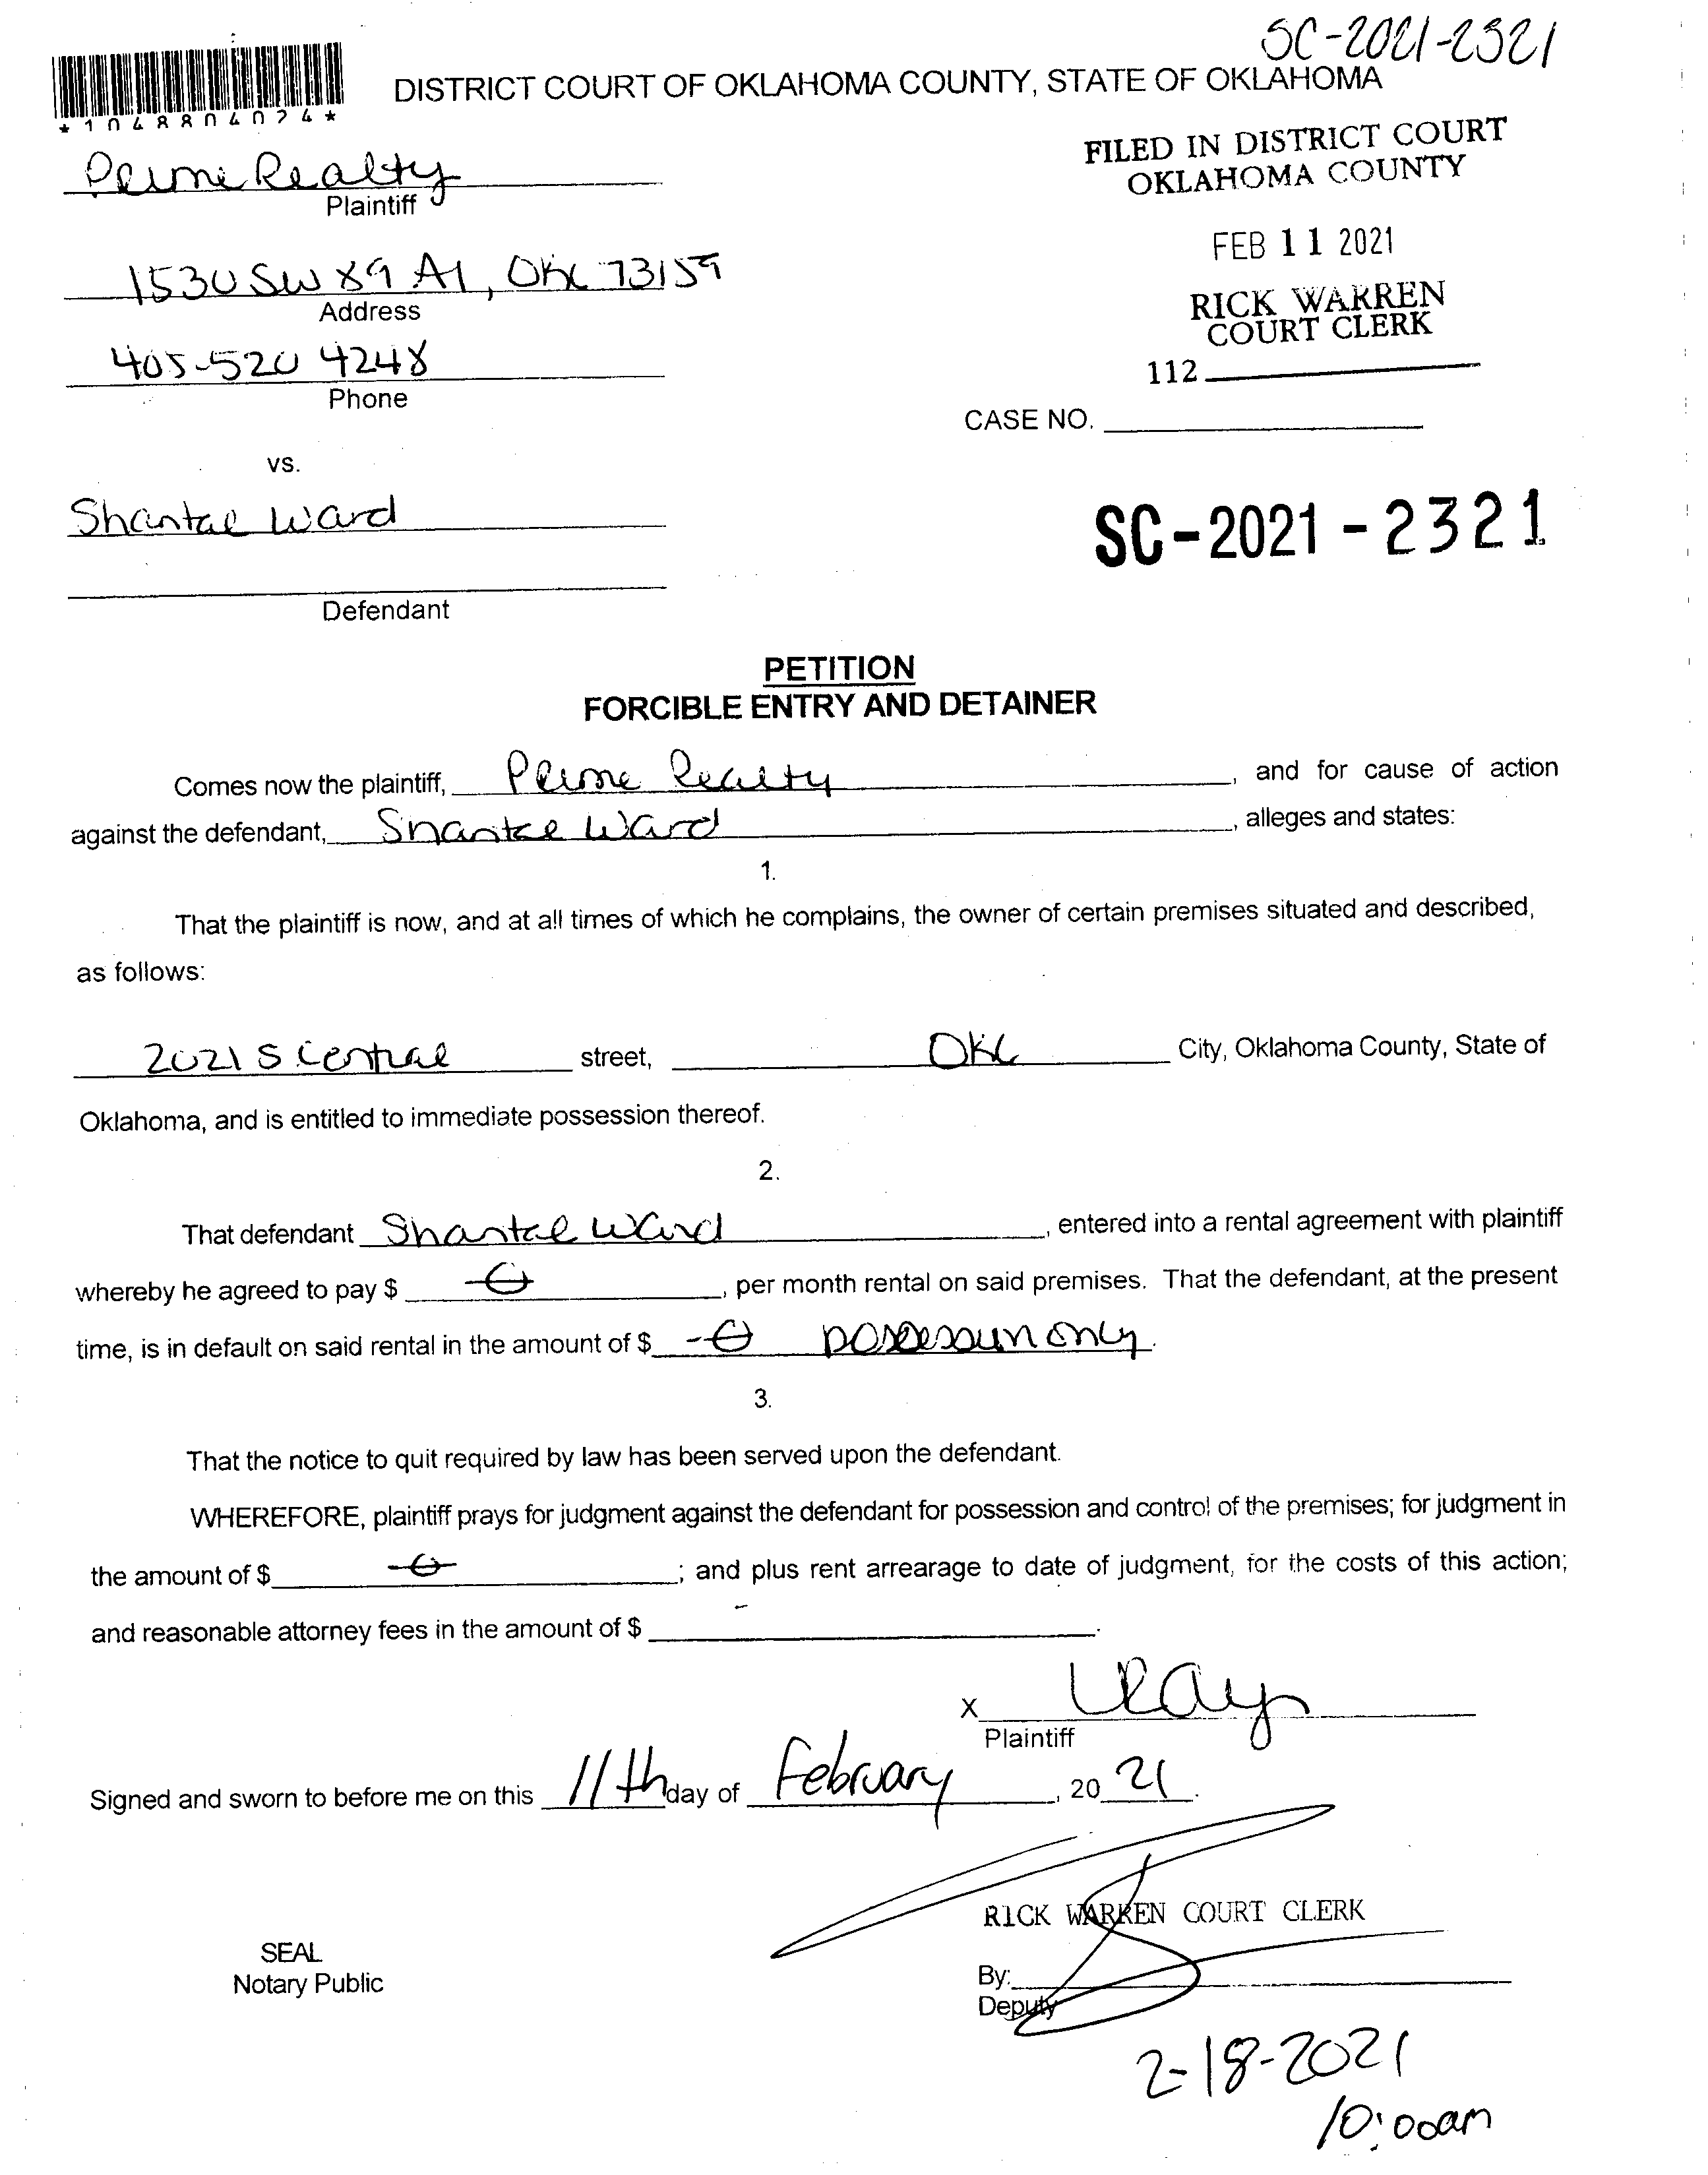 SC-2021-2321
DISTRICT COURT OF OKLAHOMA COUNTY, STATE OF OKLAHOMA
*1048804024*
FILED IN DISTRICT COURT
OKLAHOMA COUNTY
Prime Realty
Plaintiff
FEB 11 2021
1530 SW 89 A1, OKC 73159
Address
RICK WARREN
COURT CLERK
405-520 4248
Phone
112
CASE NO.
vs.
Shantae Ward
SC-2021-2321
Defendant
PETITION
FORCIBLE ENTRY AND DETAINER
Comes now the plaintiff, Prime Realty, and for cause of action
against the defendant, Shantae Ward, alleges and states:
1.
That the plaintiff is now, and at all times of which he complains, the owner of certain premises situated and described,
as follows:
2021 S Central street, OKC City, Oklahoma County, State of
Oklahoma, and is entitled to immediate possession thereof.
2.
That defendant Shantae Ward, entered into a rental agreement with plaintiff
whereby he agreed to pay $ -0-, per month rental on said premises. That the defendant, at the present
time, is in default on said rental in the amount of $ -0- possession only.
3.
That the notice to quit required by law has been served upon the defendant.
WHEREFORE, plaintiff prays for judgment against the defendant for possession and control of the premises; for judgment in
the amount of $ -0-; and plus rent arrearage to date of judgment, for the costs of this action;
and reasonable attorney fees in the amount of $
X
Plaintiff
Signed and sworn to before me on this 11th day of February, 2021.
RICK WARREN COURT CLERK
SEAL
Notary Public
By:
Deputy
2-18-2021
10:00am